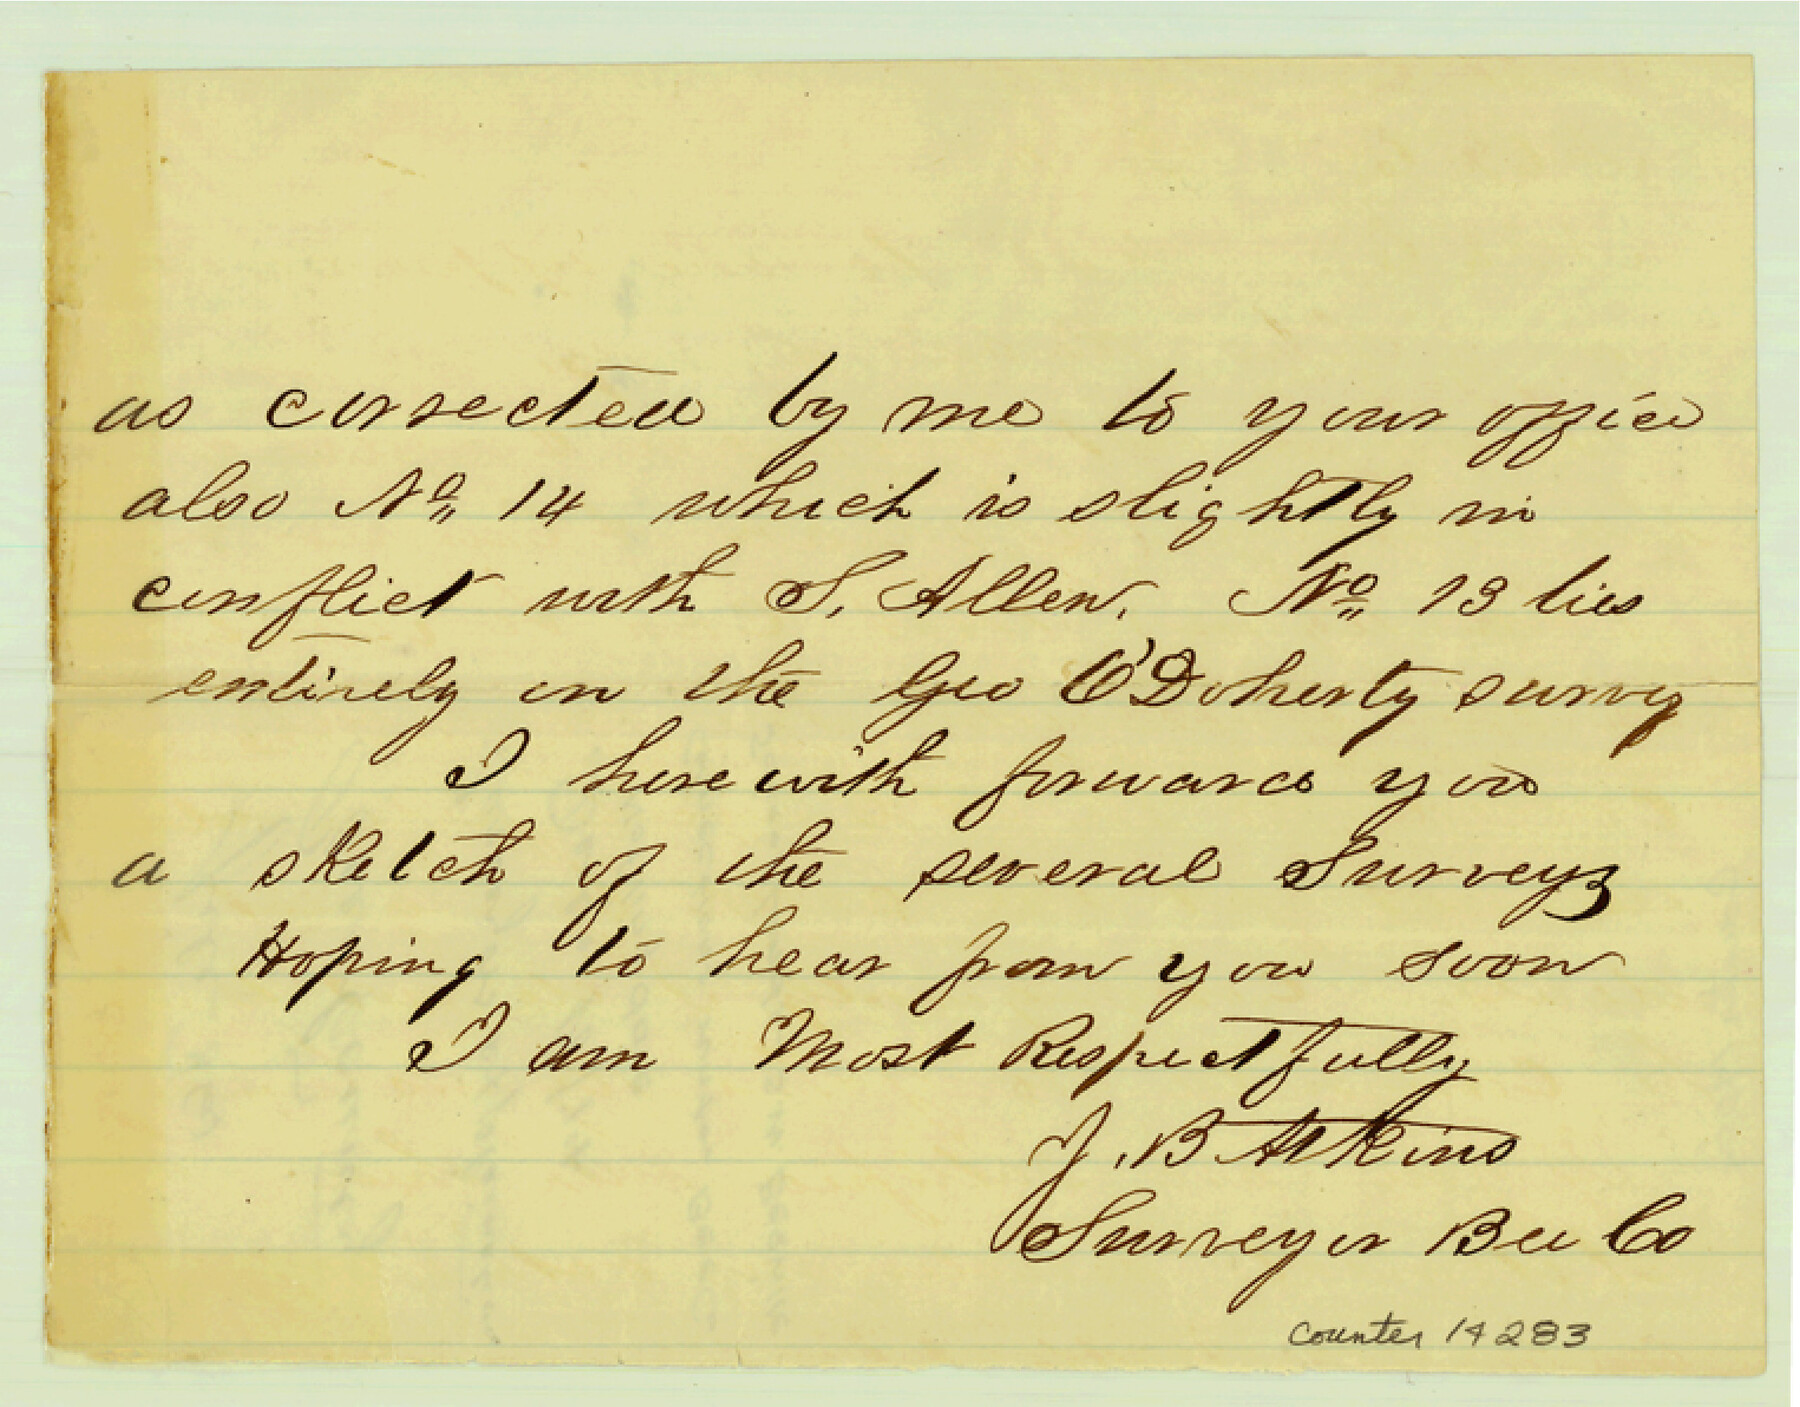 as corrected by me to your office
also No. 14 which is slightly in
conflict with S. Allen. No. 13 lies
entirely on the Geo O'Doherty survey
I herewith forward you
a sketch of the several Surveys
Hoping to hear from you soon
I am Most Respectfully
J. B Atkins
Surveyor Bee Co
counter 14283